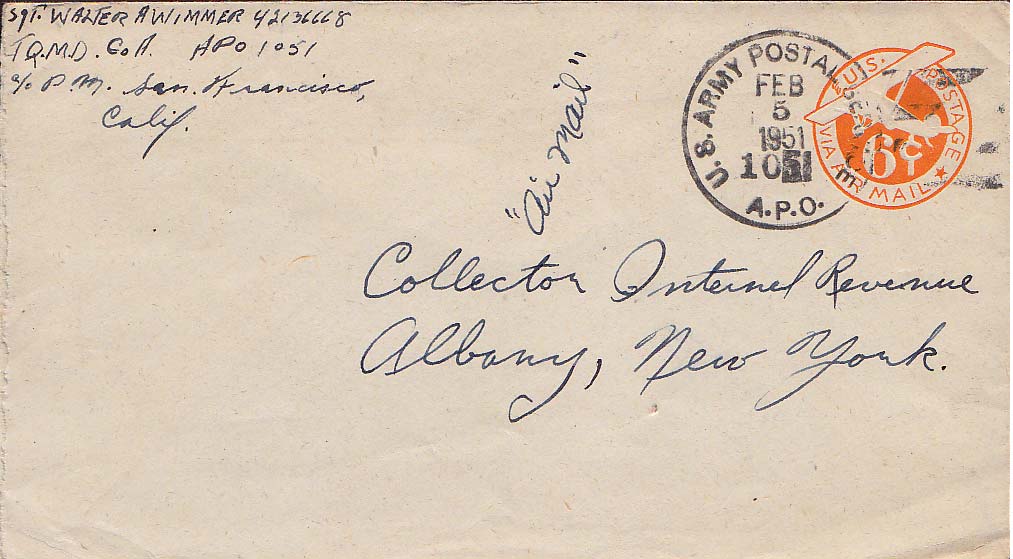 Sgt. WALTER A WIMMER 42136668
TQ.M.D. Co A. APO 1051
c/o P.M. San. Francisco,
Calif.
"Air Mail"
U.S. ARMY POSTAL SERVICE
FEB
5
1951
1051
A.P.O.
U.S. POSTAGE
6¢
VIA AIR MAIL
Collector Internel Revenue
Albany, New York.